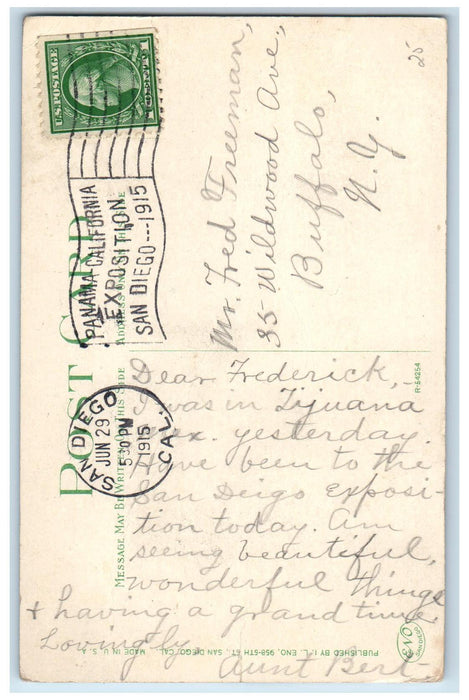 25
U.S. POSTAGE
PANAMA-CALIFORNIA
EXPOSITION
SAN DIEGO---1915
POST CARD
Mr. Fred Freeman,
35 Wildwood Ave,
Buffalo,
N.Y.
SAN DIEGO
JUN 29
5 30 PM
1915
CAL.
MESSAGE MAY BE WRITTEN ON THIS SIDE
ADDRESS ON THIS SIDE
Dear Frederick,
I was in Tijuana
Mex. yesterday.
Have been to the
San Deigo exposi-
tion today. Am
seeing beautiful,
wonderful things
+ having a grand time.
Lovingly
Aunt Bert-
R-54254
PUBLISHED BY I. L. ENO, 958-5TH ST., SAN DIEGO, CAL. MADE IN U. S. A.
ENO
SAN DIEGO